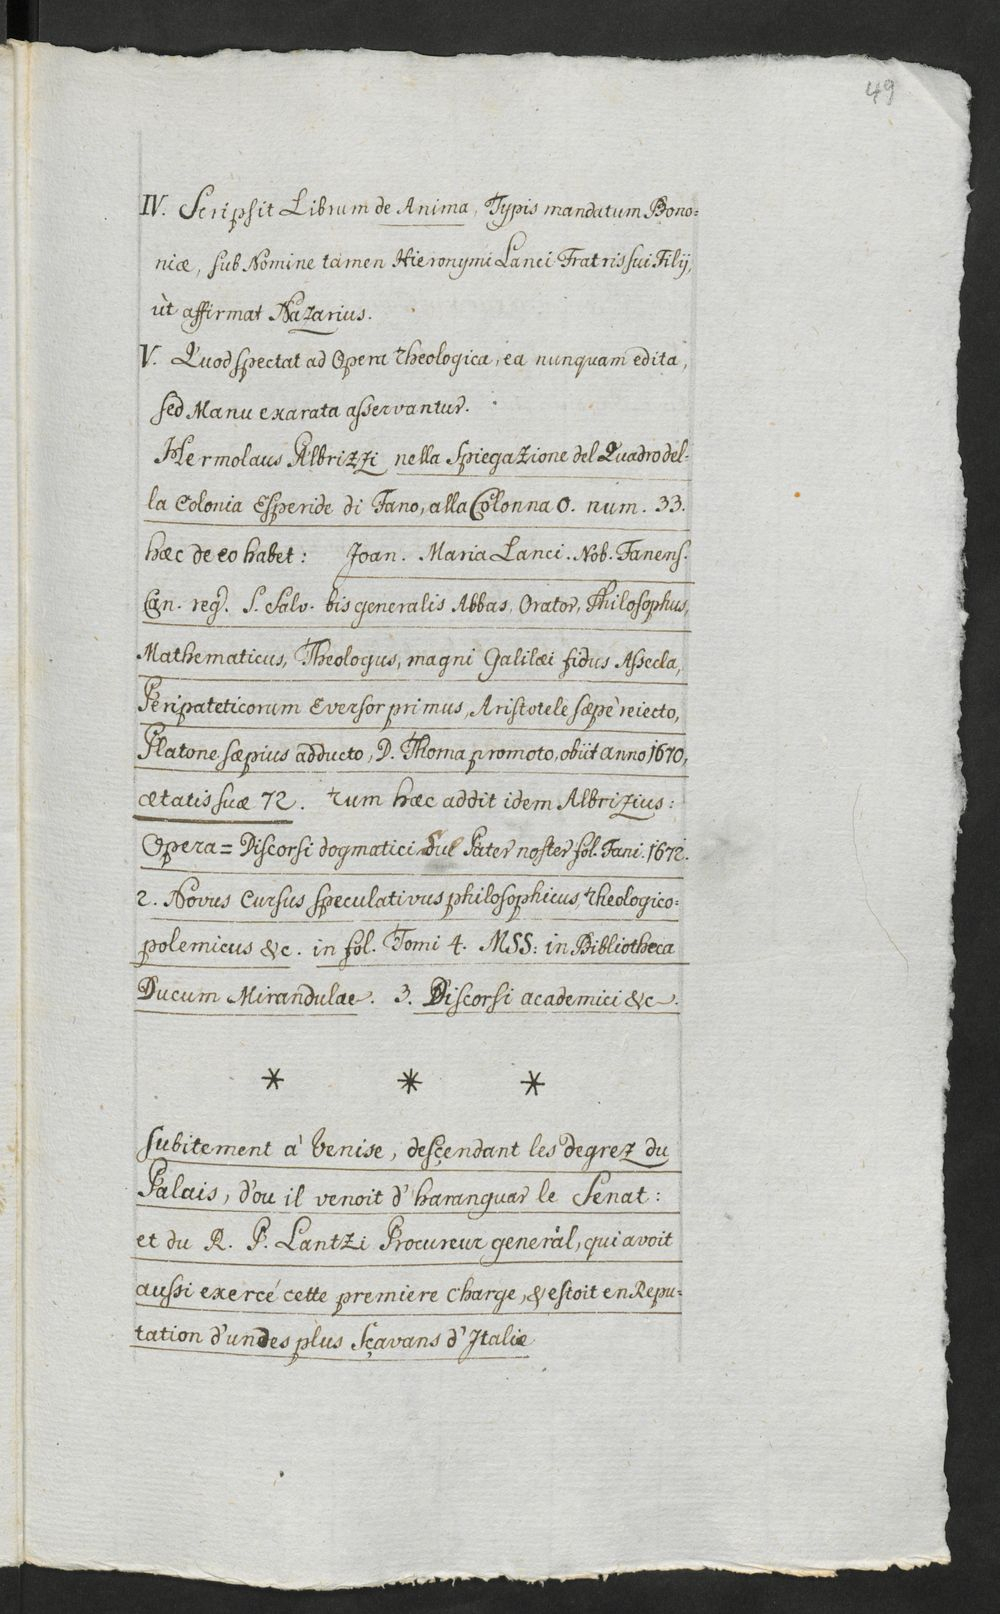 49
IV. Scripsit Librum de Anima, Typis mandatum Bono=
niæ, sub Nomine tamen Hieronymi Lanci Fratris sui Filij,
ùt affirmat Nazarius.
V. Quod spectat ad Opera Theologica, ea nunquam edita,
sed Manu exarata asservantur.
Hermolaus Albrizzi nella Spiegazione del Quadro del=
la Colonia Esperide di Fano, alla Colonna O. num. 33.
hæc de eo habet: Joan. Maria Lanci. Nob. Fanens.
Can. reg. S. Salv. bis generalis Abbas, Orator, Philosophus,
Mathematicus, Theologus, magni Galilæi fidus Assecla,
Peripateticorum Eversor primus, Aristotele sæpè reiecto,
Platone sæpius adducto, D. Thoma promoto, obiit anno 1670,
ætatis suæ 72. Tum hæc addit idem Albrizius:
Opera = Discorsi dogmatici sul Pater noster fol. Fani. 1672.
2. Novus Cursus speculativus philosophicus, theologico=
polemicus &c. in fol. Tomi 4. MSS: in Bibliotheca
Ducum Mirandulae. 3. Discorsi academici &c.
* * *
subitement à Venise, desçendant les degrez du
Palais, d'ou il venoit d'haranguar le Senat:
et du R. P. Lantzi Procureur general, qui avoit
aussi exercé cette premiere charge, & estoit en Repu=
tation d'un des plus sçavans d'Italie